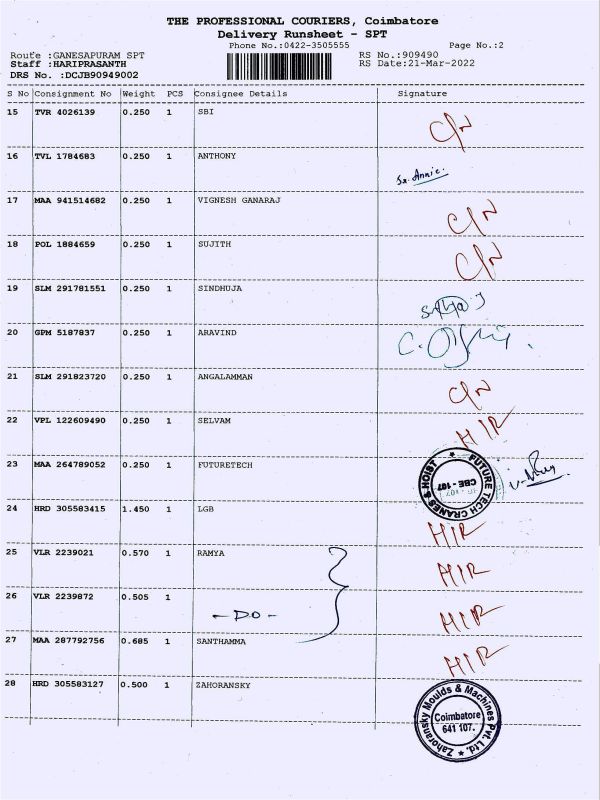 THE PROFESSIONAL COURIERS, Coimbatore
Delivery Runsheet - SPT
Phone No.:0422-3505555 Page No.:2
Route :GANESAPURAM SPT RS No.:909490
Staff :HARIPRASANTH RS Date:21-Mar-2022
DRS No. :DCJB90949002
S No Consignment No Weight PCS Consignee Details Signature
15 TVR 4026139 0.250 1 SBI C/N
16 TVL 1784683 0.250 1 ANTHONY Sr. Annie.
17 MAA 941514682 0.250 1 VIGNESH GANARAJ C/N
18 POL 1884659 0.250 1 SUJITH C/N
19 SLM 291781551 0.250 1 SINDHUJA
20 GPM 5187837 0.250 1 ARAVIND
21 SLM 291823720 0.250 1 ANGALAMMAN C/N
22 VPL 122609490 0.250 1 SELVAM HIR
23 MAA 264789052 0.250 1 FUTURETECH FUTURE TECH CRANES & HOIST CBE - 107
24 HRD 305583415 1.450 1 LGB HIR
25 VLR 2239021 0.570 1 RAMYA HIR
26 VLR 2239872 0.505 1 - DO - HIR
27 MAA 287792756 0.685 1 SANTHAMMA HIR
28 HRD 305583127 0.500 1 ZAHORANSKY Zahoransky Moulds & Machines Pvt. Ltd. Coimbatore 641 107.